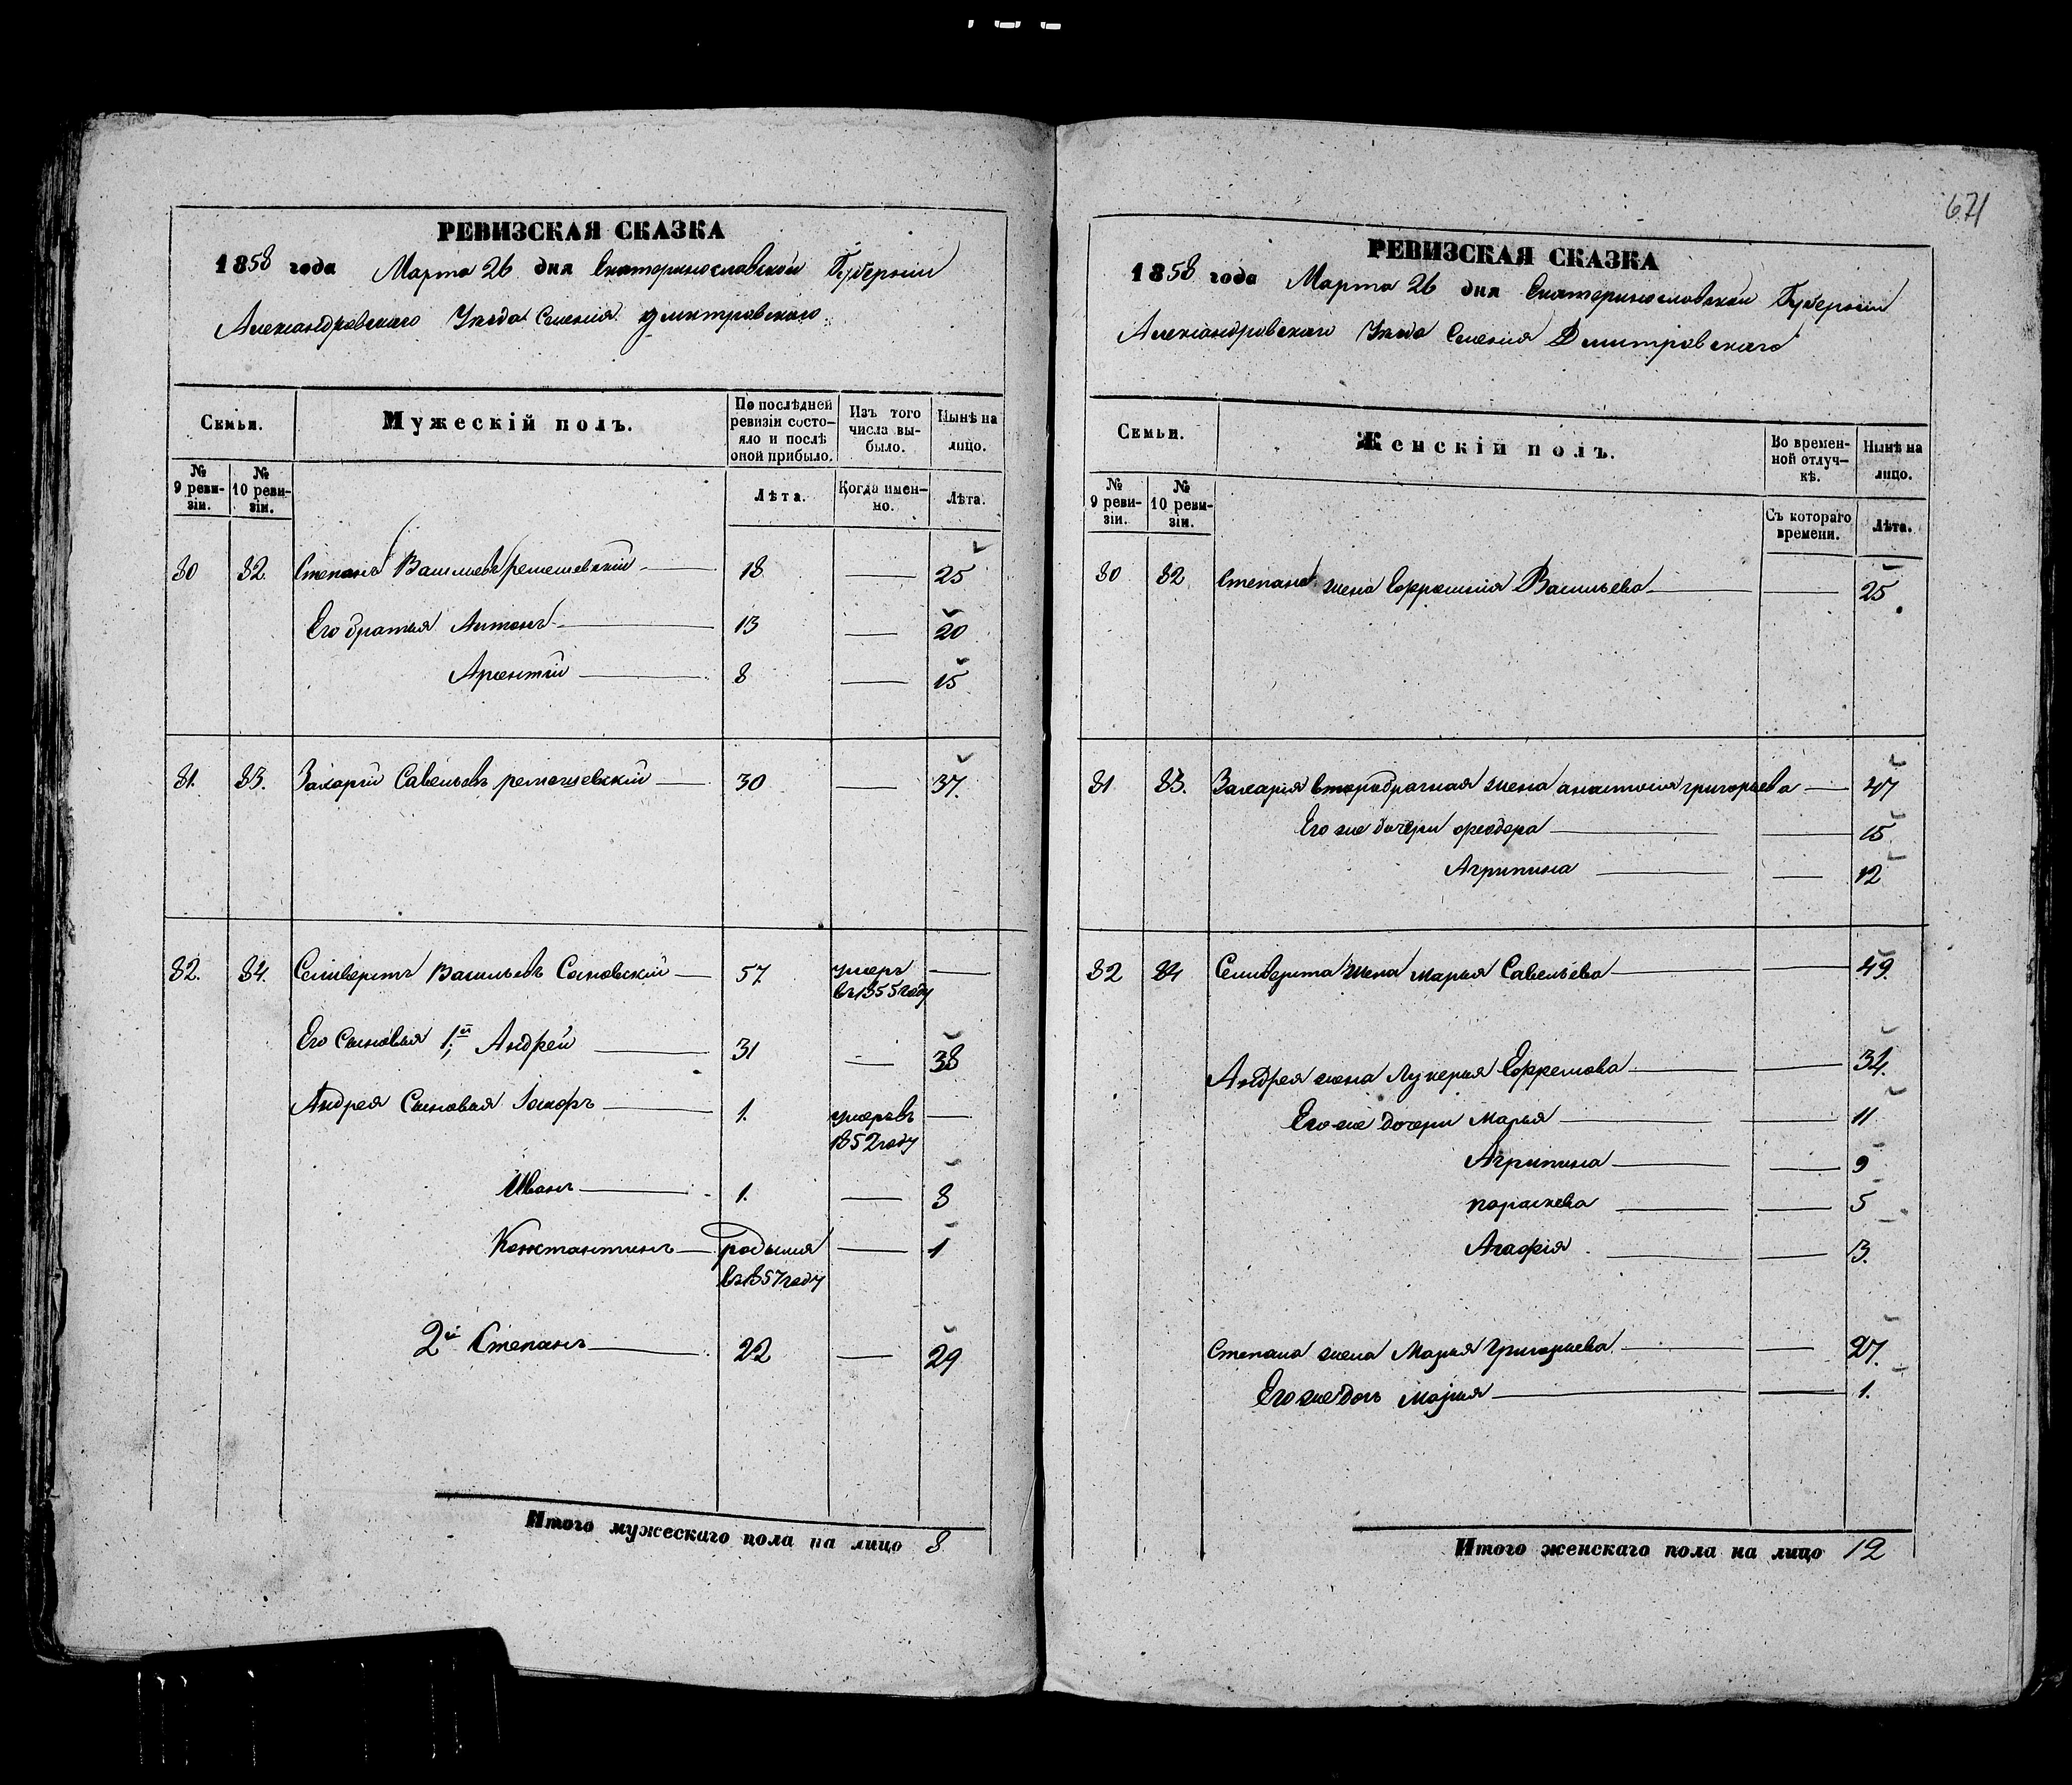 671
РЕВИЗСКАЯ СКАЗКА
1858 года Марта 26 дня Екатеринославской Губернии
Александровского Уезда Селения Дмитровского
Семьи.
Мужескій полъ.
По послѣдней ревизіи состояло и послѣ оной прибыло.
Изъ того числа выбыло.
Нынѣ на лицо.
№ 9 ревизіи.
№ 10 ревизіи.
Лѣта.
Когда именно.
Лѣта.
80 82. Степанъ Васильевъ 18 — 25
Его братья Антонъ 13 — 20
8 — 15
81. 83. Захарий Савельевъ 30 — 37.
82. 84. Селиверстъ Васильевъ 57. умеръ въ 1855 году —
Его Сыновья 1й Андрей 31 — 38
Андрея Сыновья 1. умеръ въ 1852 году —
Иванъ 1. — 8
Константинъ родился въ 1857 году — 1
2й Степанъ 22 — 29
Итого мужескаго пола на лицо 8
РЕВИЗСКАЯ СКАЗКА
1858 года Марта 26 дня Екатеринославской Губернии
Александровского Уезда Селения Дмитровского
Семьи.
Женскій полъ.
Во временной отлучкѣ.
Нынѣ на лицо.
№ 9 ревизіи.
№ 10 ревизіи.
Съ котораго времени.
Лѣта.
80 82 Степана жена Васильева — 25
81 83. Захария второбрачная жена анастасия григорьева — 47
Его же дочери феодора — 15
Агрипина — 12
82 84 Селиверста жена марья Савельева — 49.
Андрея жена Лукерья Ефремова — 34.
Его же дочери Марья — 11
Агрипина — 9
параскева — 5
Агафия — 3.
Степана жена Марья Григорьева — 27.
Его же дочь Мария — 1.
Итого женскаго пола на лицо 12